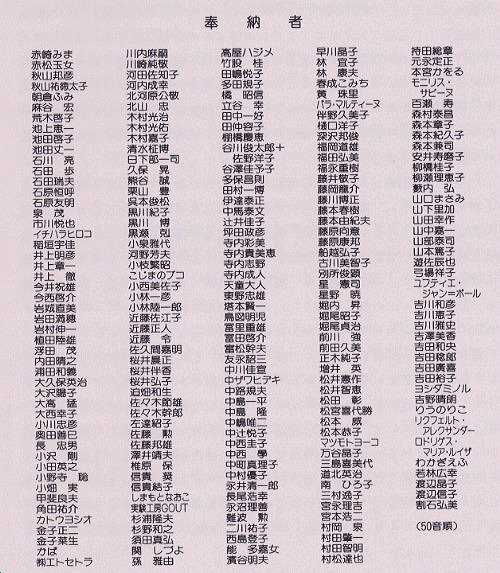 奉納者
赤崎みま
赤松玉女
秋山邦彦
秋山祐徳太子
朝倉ふみ
麻谷 宏
荒木啓子
池上恵一
池口啓子
池田丈一
石川 亮
石田 歩
石田瑞夫
石原恒呼
石原友明
泉 茂
市川悦也
イチハラヒロコ
稲垣宇佳
井上明彦
井上章一
井上 徹
今井祝雄
今西啓介
岩城直美
岩田満穂
岩村伸一
植田陸雄
浮田 茂
内田晴之
浦田和義
大久保英治
大沢陽子
大髙 猛
大西幸子
小川忠彦
奥田善巳
長 忠男
小沢 剛
小田英之
小野寺 鞄
小畑 実
甲斐良夫
角田祐介
カトウヨシオ
金子正二
金子菜生
かば
㈱エトセトラ
川内麻嗣
川崎純敬
河田佐知子
河内成幸
北河原公敬
北山 忠
木村光治
木村光佑
木村嘉子
清水柾博
日下部一司
久保 晃
熊谷 誠
栗山 豊
呉本俊松
黒川紀子
黒川 博
黒瀬 剋
小泉雅代
河野芳夫
小枝繁昭
こじまのブコ
小西美佐子
小林一彦
小林陸一郎
近藤佐江子
近藤正人
近藤 令
佐久間嘉明
桜井幹夫
桜井伴香
桜井弘子
迫畑和生
佐々木節雄
佐々木幹郎
左達紹子
佐藤 勲
佐藤邦雄
澤井靖夫
椎原 保
信貴 奨
信貴結子
しまもとなおこ
実験工房GOUT
杉浦隆夫
杉野和之
須田真弘
関 しづよ
孫 雅由
高屋ハジメ
竹股 桂
田嶋悦子
多田規子
橘 昭信
立谷 幸
田中一好
田仲容子
棚橋慶恵
谷川俊太郎+
佐野洋子
谷澤佳予子
多保昌則
田村一博
伊達泰正
中馬泰文
辻井佳子
坪田政彦
寺内彩美
寺内貴美恵
寺内志野
寺内成人
天童大人
東野忠雄
塔本賢一
鳥図明児
富里重雄
富田敏夫
富松幹夫
友永昭三
中川佳宣
中ザワヒデキ
中路規夫
中島一平
中島 隆
中嶋唯二
中辻悦子
中西圭子
中西 學
中町真理子
中村優子
永井清一郎
長尾浩幸
永沼理善
難波 勲
二川祐子
西島登子
能 多嘉女
濱谷明夫
早川晶子
林 宜子
林 康夫
春成こみち
黄 珠里
パラ・マルティーヌ
伴野久美子
樋口洋子
深沢邦俊
福岡道雄
福田弘美
福永重樹
藤井敏子
藤岡龍介
藤川博正
藤本春樹
藤本由紀夫
藤原向意
藤原康邦
船越弘子
古川美智子
別所俊顕
星 憲司
星野 暁
堀内 昇
堀尾昭子
堀尾貞治
前川 強
前田久美
正木純子
増井 英
松井憲作
松井智恵
松田 彰
松宮喜代勝
松本 威
松本恭子
マツモトヨーコ
万谷晶子
三島喜美代
道北英治
南 ひろ子
三村逸子
宮永理吉
宮本浩二
村岡 泉
村田肇一
村田智明
村松達也
持田総章
元永定正
本宮かをる
モニリス・
サビーヌ
百瀬 寿
森村泰昌
森本章子
森本紀久子
森本兼司
安井寿磨子
柳橋桂子
柳瀬理恵子
藪内 弘
山口まさみ
山下里加
山田幸作
山中嘉一
山部泰司
山本篤子
遊佐辰也
弓場祥子
ユフティエ・
ジャン=ポール
吉川和彦
吉川恵子
吉川雅史
吉澤美香
吉田和央
吉田稔郎
吉田廣喜
吉田裕子
ヨシダミノル
吉野晴朗
りうのりこ
リクフェルト・
アレクサンダー
ロドリゲス・
マリア・ルイザ
わかぎえふ
若林広幸
渡辺晶子
渡辺信子
割石弘美
(50音順)